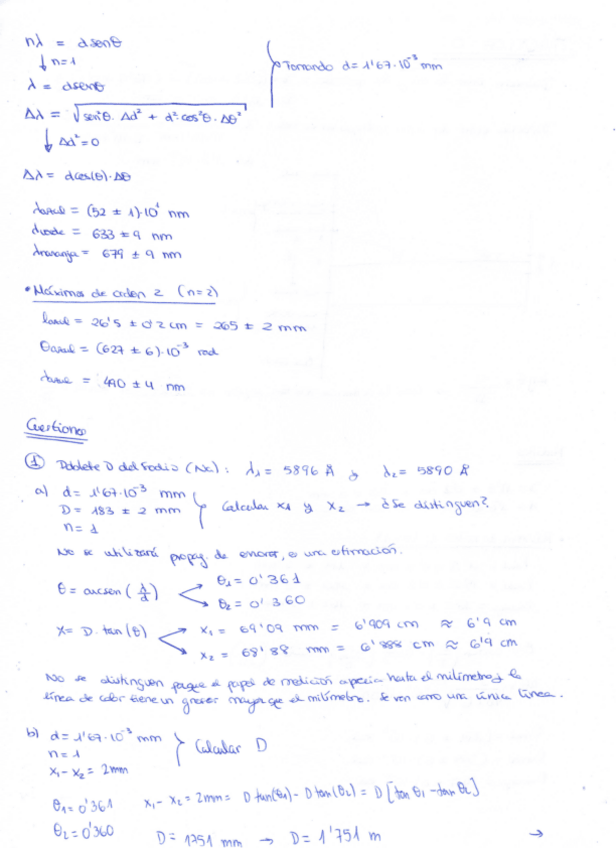 nλ = d senθ
↓ n=1
Tomando d = 1'67·10⁻³ mm
λ = d senθ
Δλ = √(sen²θ · Δd² + d² cos²θ · Δθ²)
↓ Δd² = 0
Δλ = d cos(θ)·Δθ
λazul = (52 ± 1)·10¹ nm
λverde = 633 ± 9 nm
λnaranja = 679 ± 9 nm
• Máximos de orden 2 (n=2)
lazul = 26'5 ± 0'2 cm = 265 ± 2 mm
θazul = (627 ± 6)·10⁻³ rad
λazul = 490 ± 4 nm
Cuestiones
① Doblete D del Sodio (Na): λ₁ = 5896 Å y λ₂ = 5890 Å
a) d = 1'67·10⁻³ mm
D = 183 ± 2 mm
n = 1
Calcular x₁ y x₂ → ¿Se distinguen?
No se utilizará propag. de errores, es una estimación.
θ = arcsen(λ/d)
θ₁ = 0'361
θ₂ = 0'360
X = D·tan(θ)
x₁ = 69'09 mm = 6'909 cm ≈ 6'9 cm
x₂ = 68'88 mm = 6'888 cm ≈ 6'9 cm
No se distinguen porque el papel de medición aprecia hasta el milímetro y la
línea de color tiene un grosor mayor que el milímetro. Se ven como una única línea.
b) d = 1'67·10⁻³ mm
n = 1
x₁ - x₂ = 2mm
Calcular D
θ₁ = 0'361
θ₂ = 0'360
x₁ - x₂ = 2mm = D tan(θ₁) - D tan(θ₂) = D [tan θ₁ - tan θ₂]
D = 1751 mm → D = 1'751 m
→